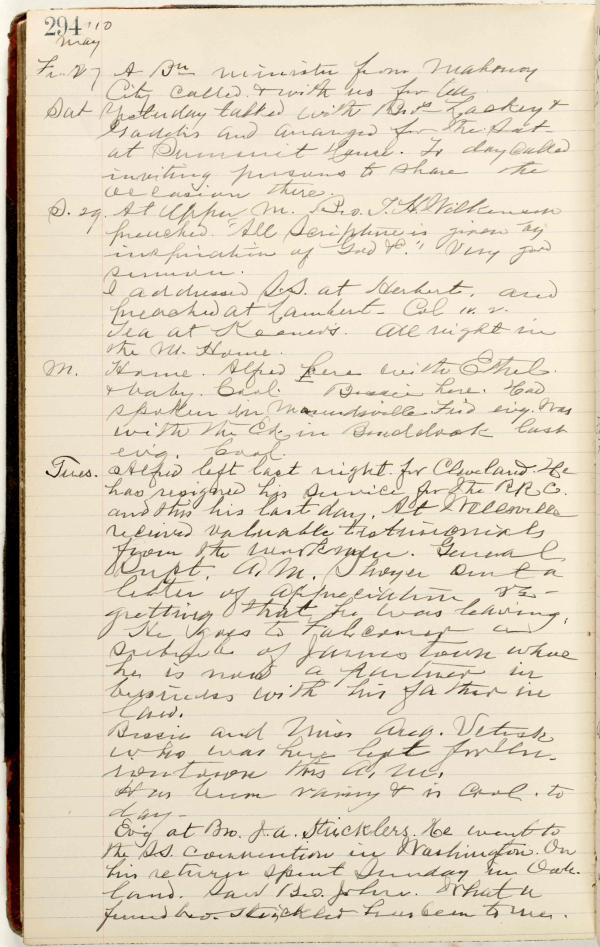 294 '10
May
Fr. 27 A Bn minister from Mahonoy
City called & with us for tea.
Sat Yesterday talked with Bros Laskey &
Gaddis and arranged for the Sat-
at Summit House. To day called
inviting persons to share the
occasion there.
S. 29. At Upper M. Bro. T. H. Wilkenson
preached. "All Scripture is given by
inspiration of God &c." Very good
sermon.
I addressed S.S. at Herbert, and
preached at Lambert - Col
Tea at All night in
the M. Home.
M. Home. Alfred here with Ethel
& baby. Cool. Bessie here. Had
spoken in Moundsville Frid evg. Was
with the Ch. in Braddock last
evg. Cool.
Tues. Alfred left last night for Cleveland. He
has resigned his service for the R.R. Co.
and this his last day. At Wellsville
received valuable testimonials
from the workmen. General
Supt. A. M. sent a
letter of appreciation & re-
gretting that he was leaving.
He goes to Falconer a
suburb of Jamestown where
he is now a partner in
business with his father in
law.
Bessie and Miss Aug.
who was here left for Un-
iontown this A.M.
It has been rainy & is cool to
day -
Evg at Bro. J. A. Stricklers. He went to
the S.S. convention in Washington. On
his return spent Sunday in Oak-
land. Saw Bro. John. What a
friend bro. Strickler has been to me.